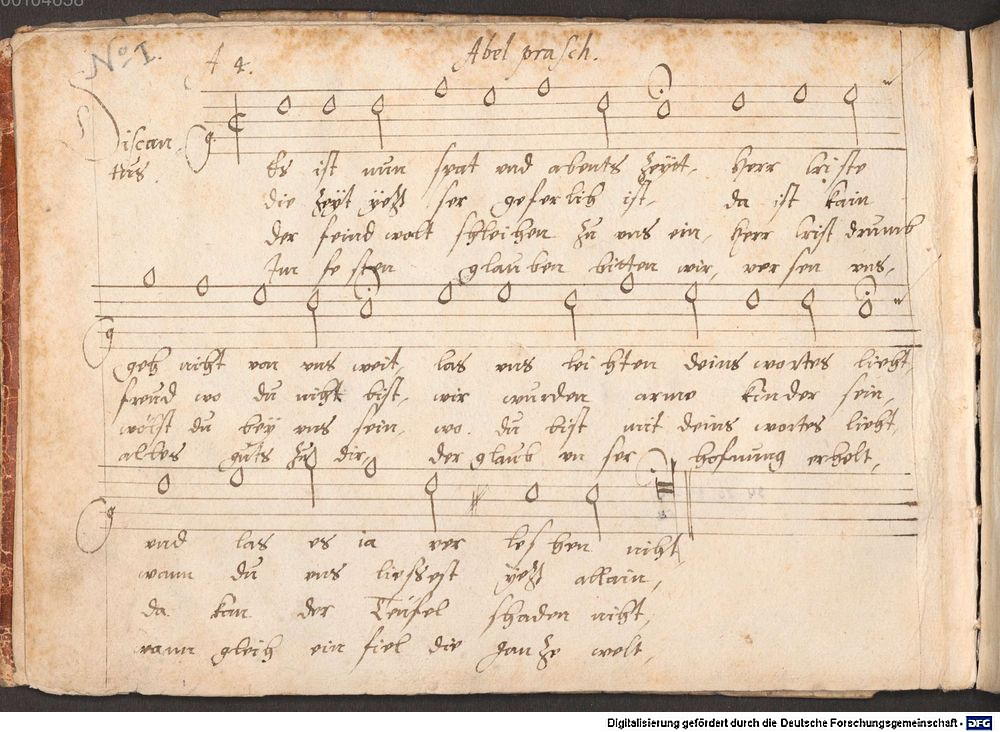 00104638
No I.
A 4.
Abel prasch.
Discan
tus.
Es ist nun spat vnd abents zeytt, Herr Criste
die zeyt yetzt ser geferlich ist, da ist kain
der feind wolt schleichen zu vns ein, Herr Crist drumb
Im fe sten glau ben bitten wir, ver sen vns,
geh nicht von vns weit, las vns leichten deins wortes liecht,
freud wo du nicht bist, wir wurden arme kinder sein,
wölst du bey vns sein, wo du bist mit deins wortes liecht,
alles guts zu dir, der glaub vn ser hofnung erhelt,
vnd las es ia ver leschen nicht,
wann du vns liessest yetz allain,
da kan der Teüfel schaden nicht,
wann gleich ein fiel die gantze welt,
Digitalisierung gefördert durch die Deutsche Forschungsgemeinschaft - DFG